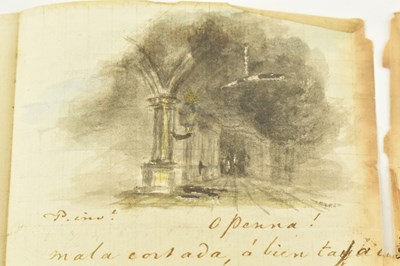 P. invᵗ. O Penna!
mala cortada, ó bien tajada